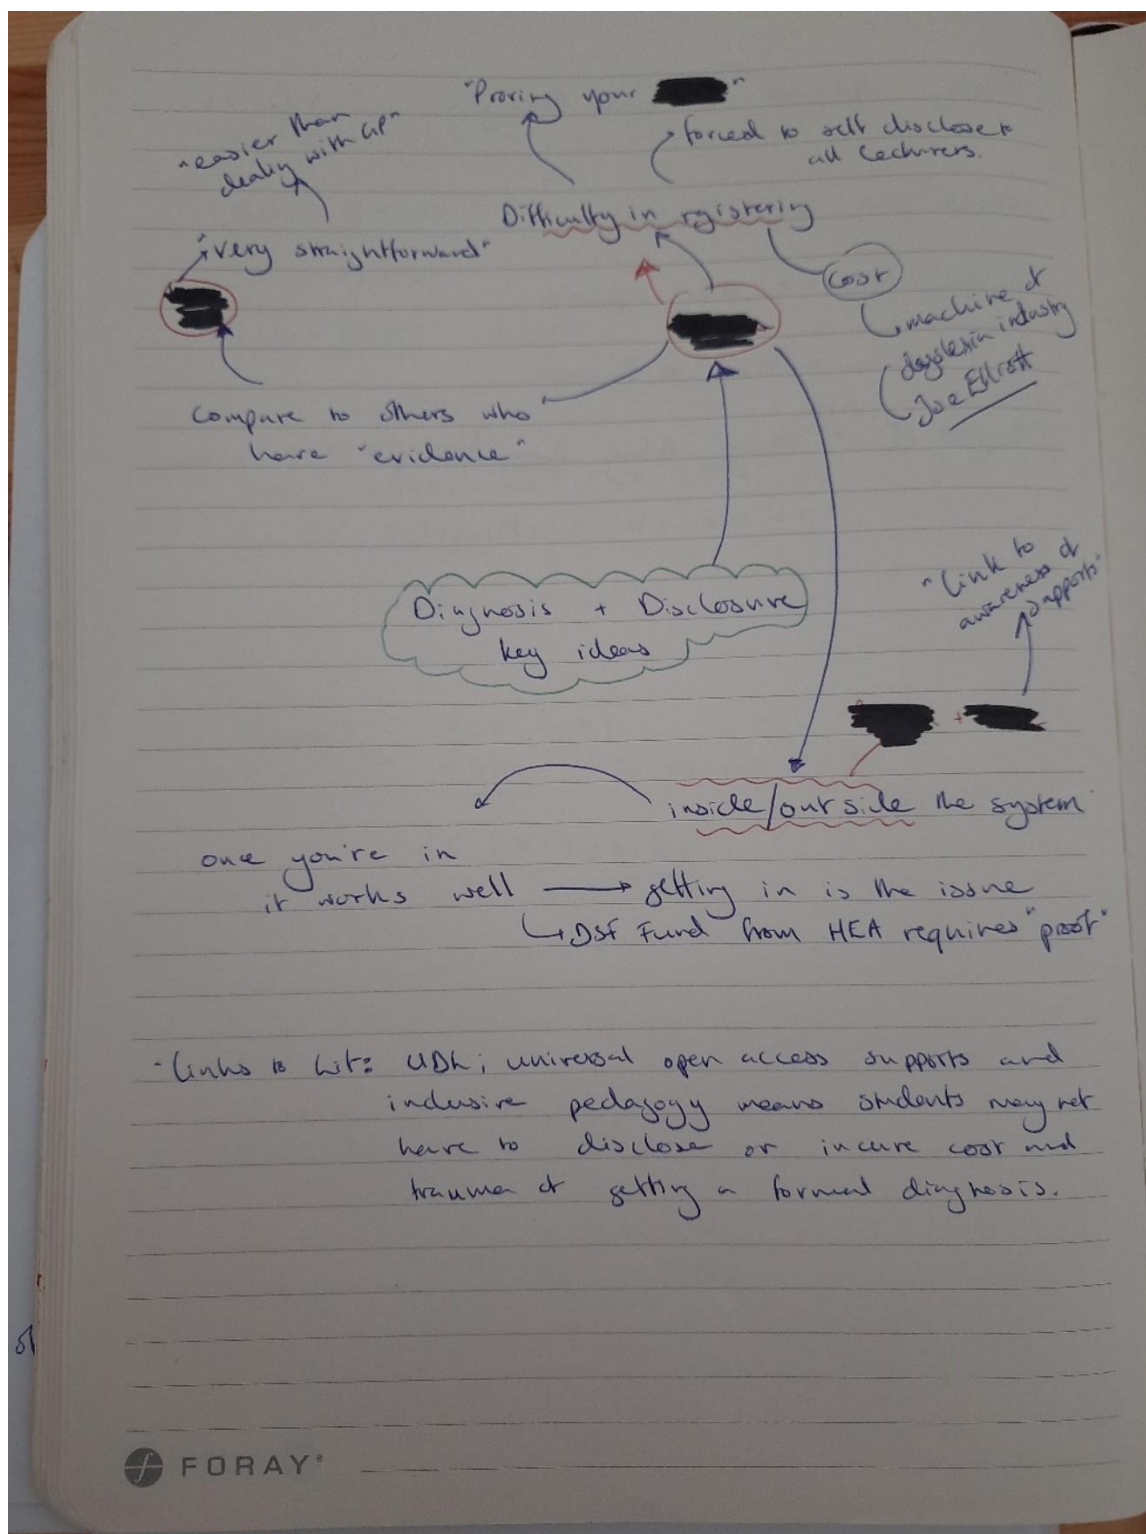 "Proving your "
"easier than
dealing with GP"
forced to self disclose to
all lecturers.
Difficulty in rgistering
"very straightforward"
Cost
machine of
dyslexia industry
Joe Elliott
Compare to others who
have "evidence"
Diagnosis + Disclosure
key ideas
"Link to
awareness of
supports"
+
inside/outside the system
once you're in
it works well → getting in is the issue
DSF Fund from HEA requires "proof"
- Links to Lit: UDL; universal open access supports and
inclusive pedagogy means students may not
have to disclose or incure cost and
trauma of getting a formal diagnosis.
FORAY